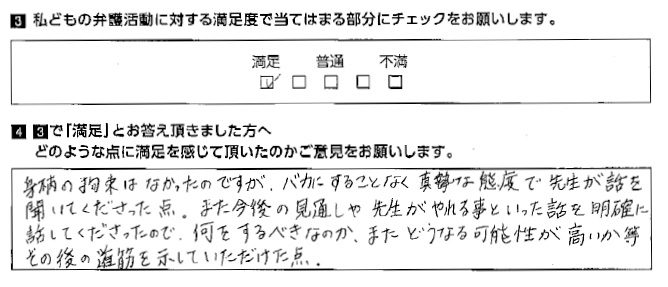 3 私どもの弁護活動に対する満足度で当てはまる部分にチェックをお願いします。
満足 普通 不満
4 3で「満足」とお答え頂きました方へ
どのような点に満足を感じて頂いたのかご意見をお願いします。
身柄の拘束はなかったのですが、バカにすることなく真摯な態度で先生が話を
聞いてくださった点。また今後の見通しや先生がやれる事といった話を明確に
話してくださったので、何をするべきなのか、またどうなる可能性が高いか等
その後の道筋を示していただけた点。